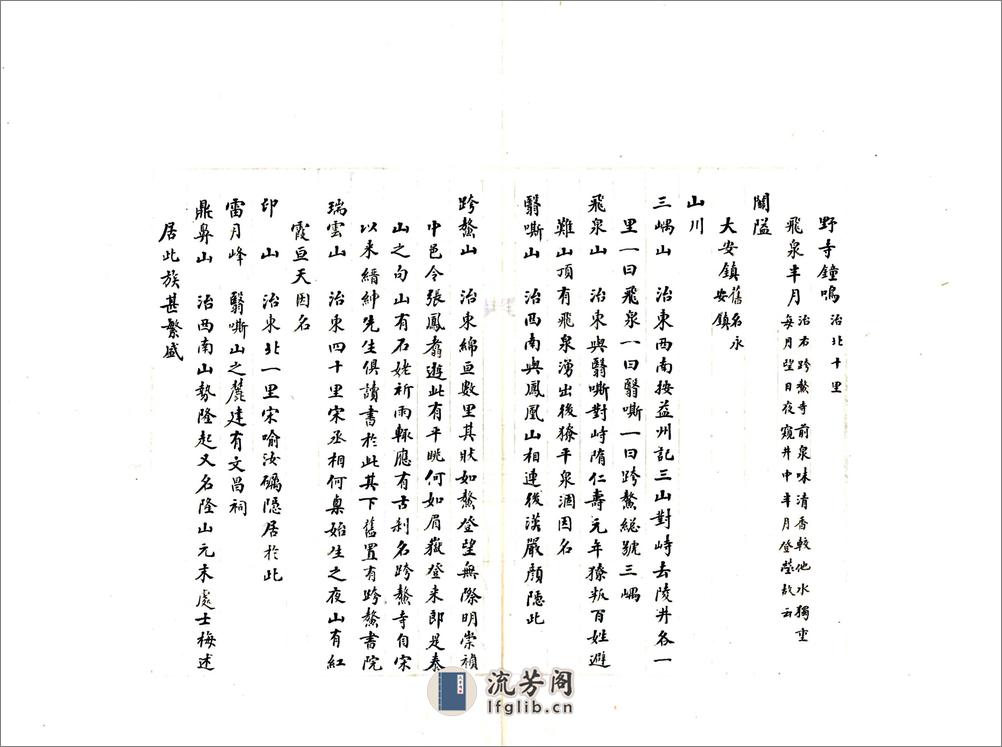 野寺鐘鳴 治北十里
飛泉半月 治右跨鰲寺前泉味清香較他水獨重
每月望日夜窺井中半月登瑩故云
關隘
大安鎮 舊名永
安鎮
山川
三嵎山 治東西南按益州記三山對峙去陵井各一
里一曰飛泉一曰翳嘶一曰跨鰲総號三嵎
飛泉山 治東與翳嘶對峙隋仁壽元年獠叛百姓避
難山頂有飛泉湧出後獠平泉涸因名
翳嘶山 治西南與鳳凰山相連後漢嚴顏隱此
跨鰲山 治東綿亘數里其狀如鰲登望無際明崇禎
中邑令張鳳翥遊此有平眺何如眉嶽登来即是泰
山之句山有石姥祈雨輒應有古刹名跨鰲寺自宋
以来縉紳先生俱讀書於此其下舊置有跨鰲書院
瑞雲山 治東四十里宋丞相何㮚始生之夜山有紅
霞亘天因名
印山 治東北一里宋喻汝礪隱居於此
雷月峰 翳嘶山之麓建有文昌祠
鼎鼻山 治西南山勢隆起又名隆山元末處士梅述
居此族甚繁盛
流芳阁
lfglib.cn